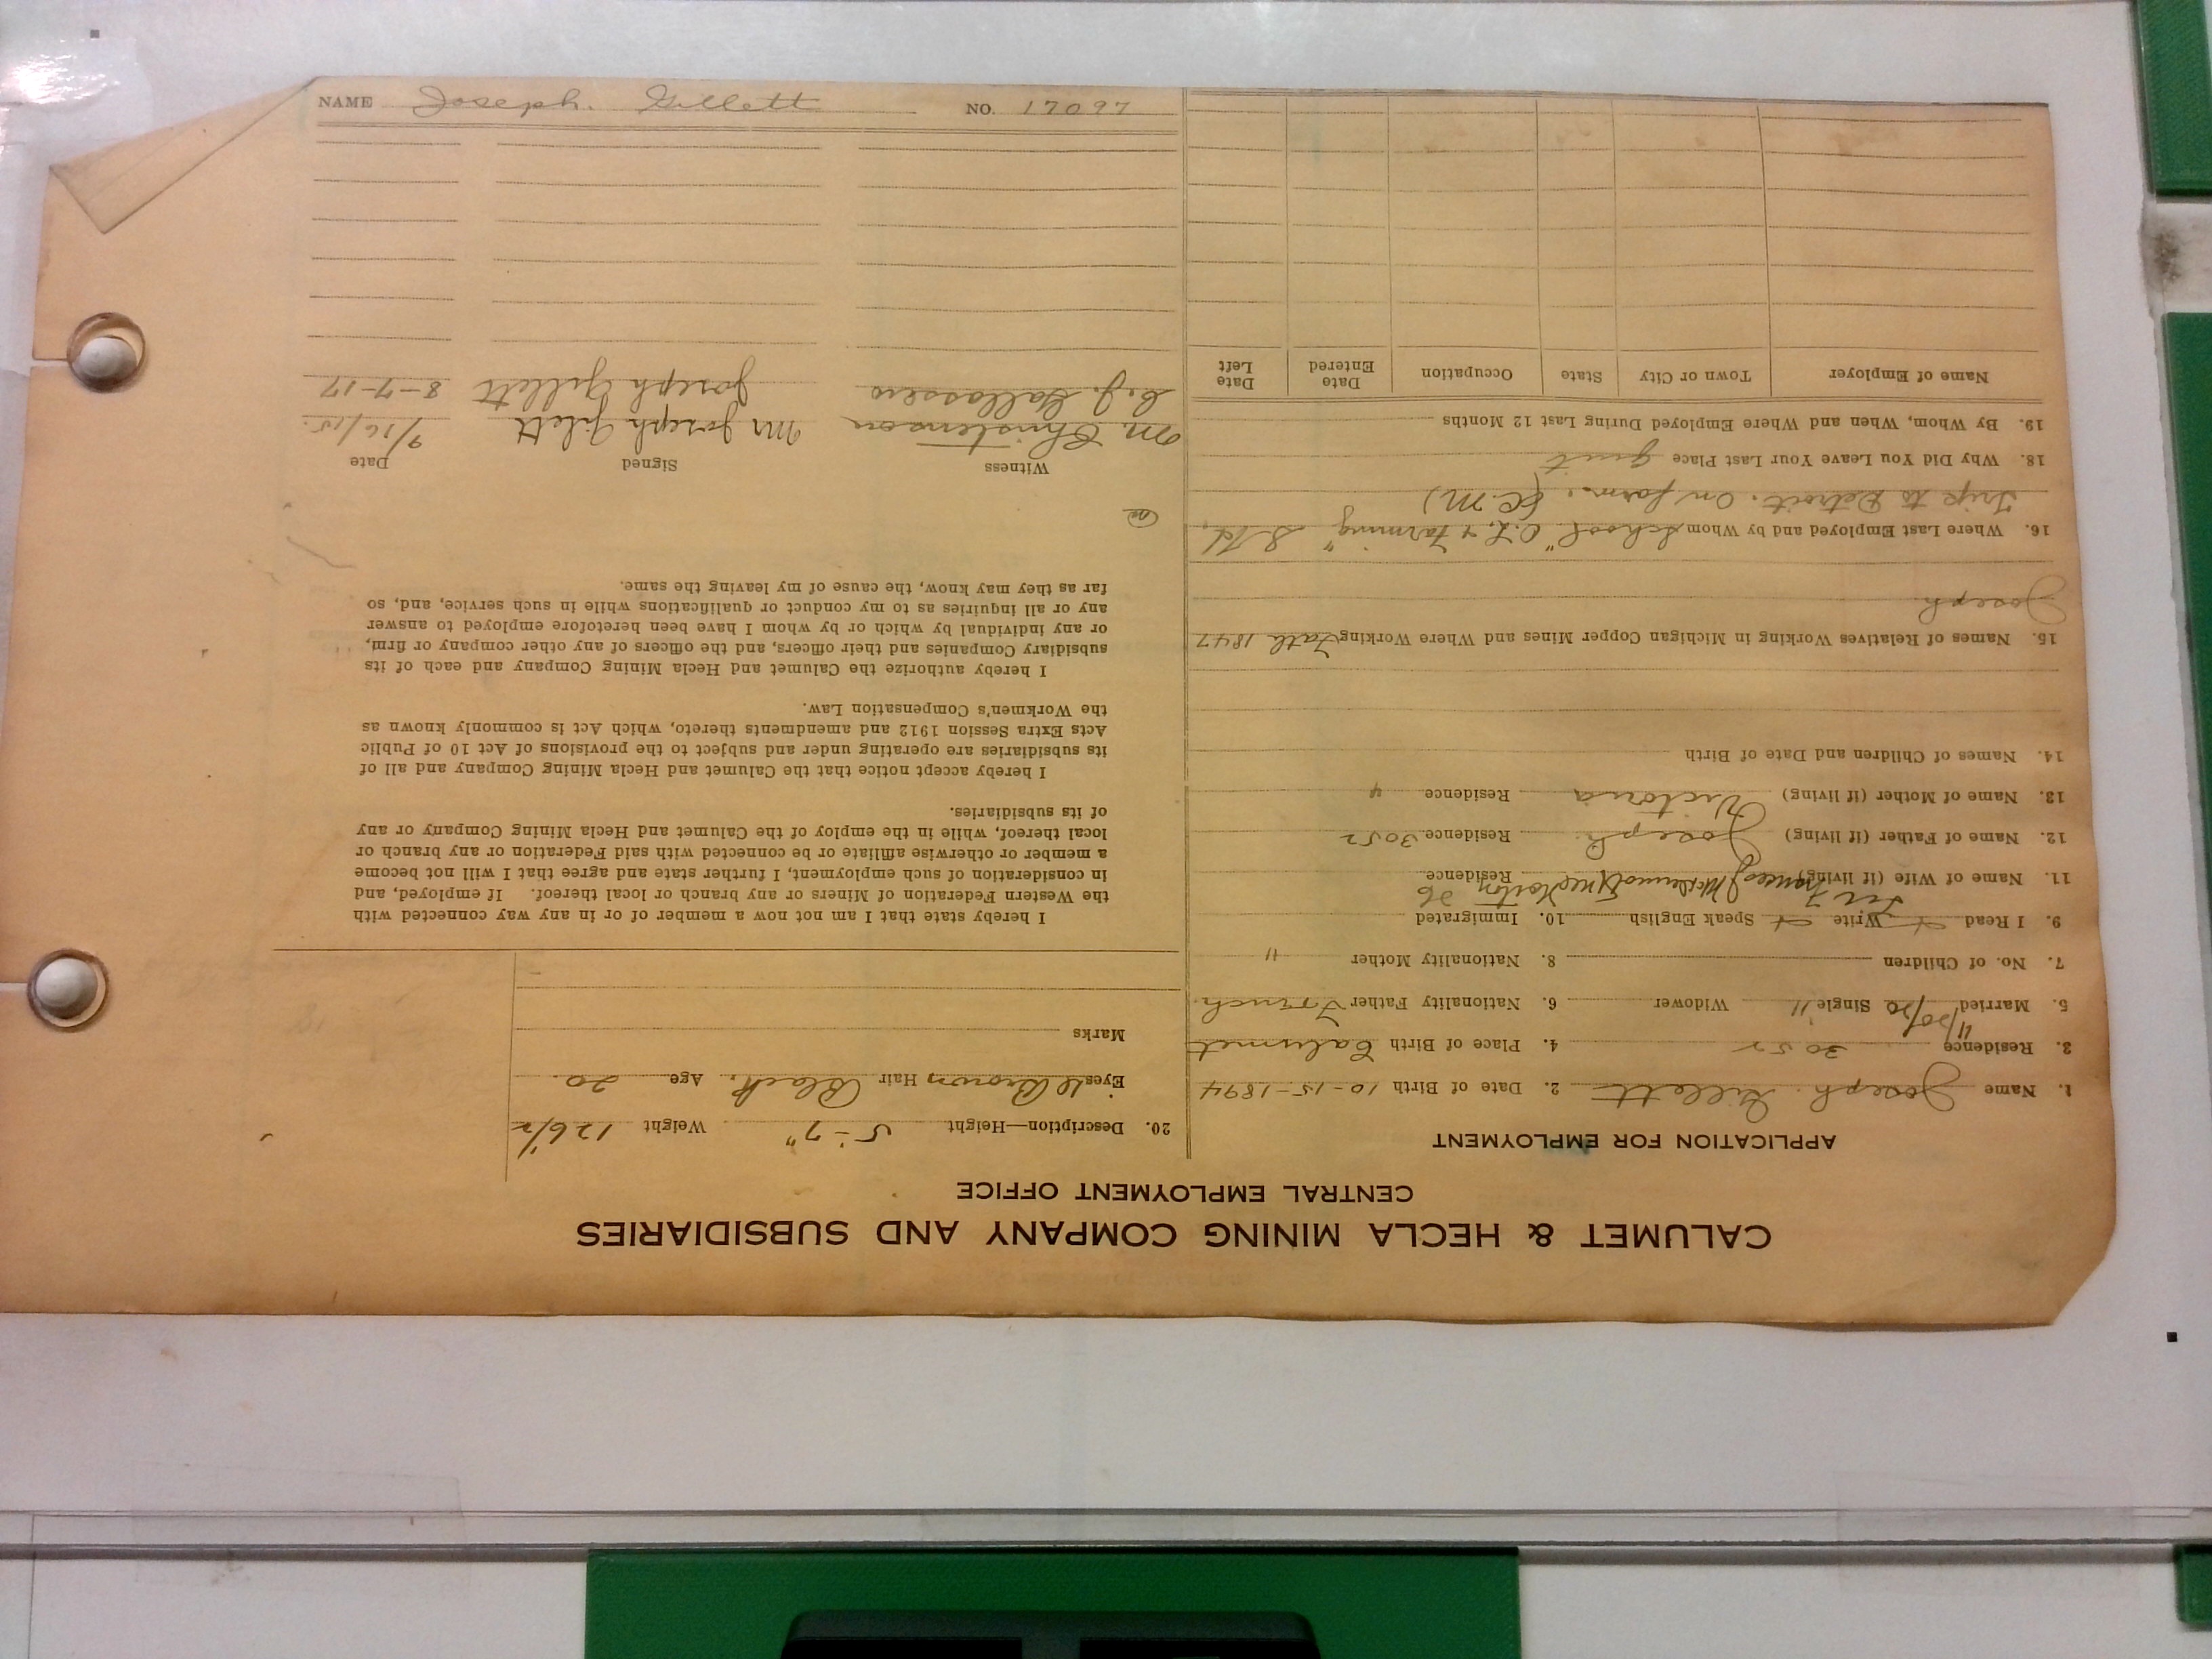 CALUMET & HECLA MINING COMPANY AND SUBSIDIARIES
CENTRAL EMPLOYMENT OFFICE
APPLICATION FOR EMPLOYMENT
1. Name Joseph Gillett 2. Date of Birth 10-15-1894
3. Residence 3052 4. Place of Birth Calumet
5. Married 11/20/20 Single 11 Widower 6. Nationality Father French
7. No. of Children 8. Nationality Mother "
9. I Read Write Speak English 10. Immigrated
11. Name of Wife (if living) Residence
12. Name of Father (if living) Joseph Residence 3052
13. Name of Mother (if living) Victoria Residence "
14. Names of Children and Date of Birth
15. Names of Relatives Working in Michigan Copper Mines and Where Working Fath 1847
Joseph
16. Where Last Employed and by Whom School "C.L. & Farming"
Trip to Detroit. On farm. (C.M)
18. Why Did You Leave Your Last Place quit
19. By Whom, When and Where Employed During Last 12 Months
Name of Employer Town or City State Occupation Date Entered Date Left
20. Description—Height 5'-7" Weight 126 1/2
Eyes Brown Hair Black. Age 20.
Marks
I hereby state that I am not now a member of or in any way connected with
the Western Federation of Miners or any branch or local thereof. If employed, and
in consideration of such employment, I further state and agree that I will not become
a member or otherwise affiliate or be connected with said Federation or any branch or
local thereof, while in the employ of the Calumet and Hecla Mining Company or any
of its subsidiaries.
I hereby accept notice that the Calumet and Hecla Mining Company and all of
its subsidiaries are operating under and subject to the provisions of Act 10 of Public
Acts Extra Session 1912 and amendments thereto, which Act is commonly known as
the Workmen's Compensation Law.
I hereby authorize the Calumet and Hecla Mining Company and each of its
subsidiary Companies and their officers, and the officers of any other company or firm,
or any individual by which or by whom I have been heretofore employed to answer
any or all inquiries as to my conduct or qualifications while in such service, and, so
far as they may know, the cause of my leaving the same.
Witness Signed Date
M. Christenson Mr Joseph Gilett 9/16/15.
C. J. Joseph Gillett 8-7-17
NAME Joseph. Gillett NO. 17097